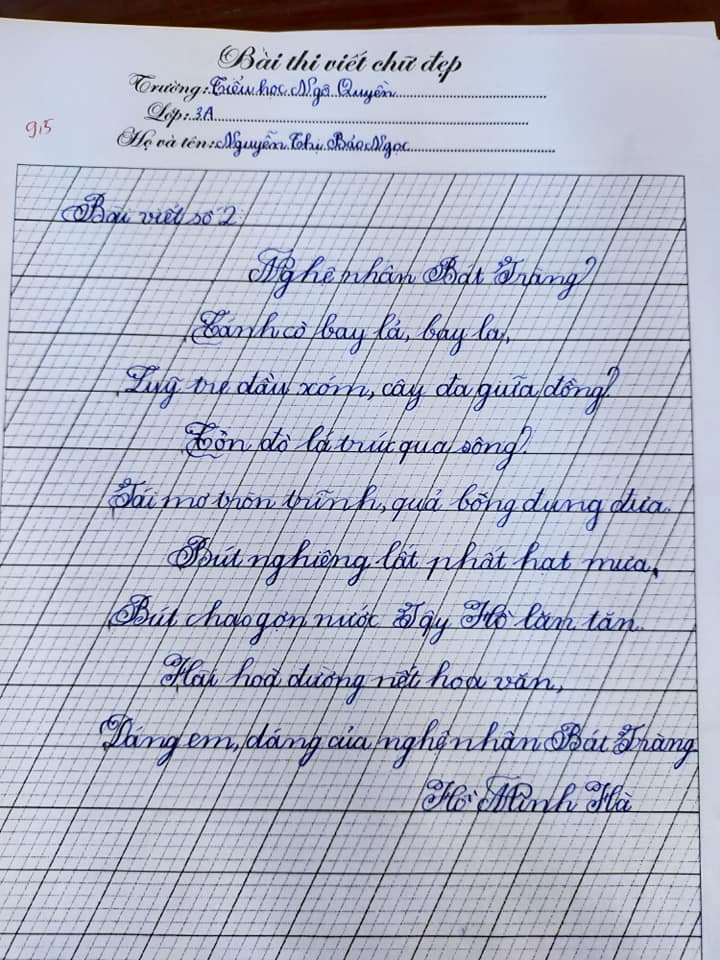 Bài thi viết chữ đẹp
Trường: Tiểu học Ngô Quyền
Lớp: 3A
9,5
Họ và tên: Nguyễn Thị Bảo Ngọc
Bài viết số 2
Nghệ nhân Bát Tràng
Cánh cò bay lả, bay la,
Luỹ tre đầu xóm, cây đa giữa đồng.
Con đò lá trúc qua sông.
Trái mơ tròn trĩnh, quả bòng đung đưa.
Bút nghiêng lất phất hạt mưa,
Bút chao gợn nước Tây Hồ lăn tăn.
Hài hoà đường nét hoa văn,
Dáng em, dáng của nghệ nhân Bát Tràng
Hồ Minh Hà